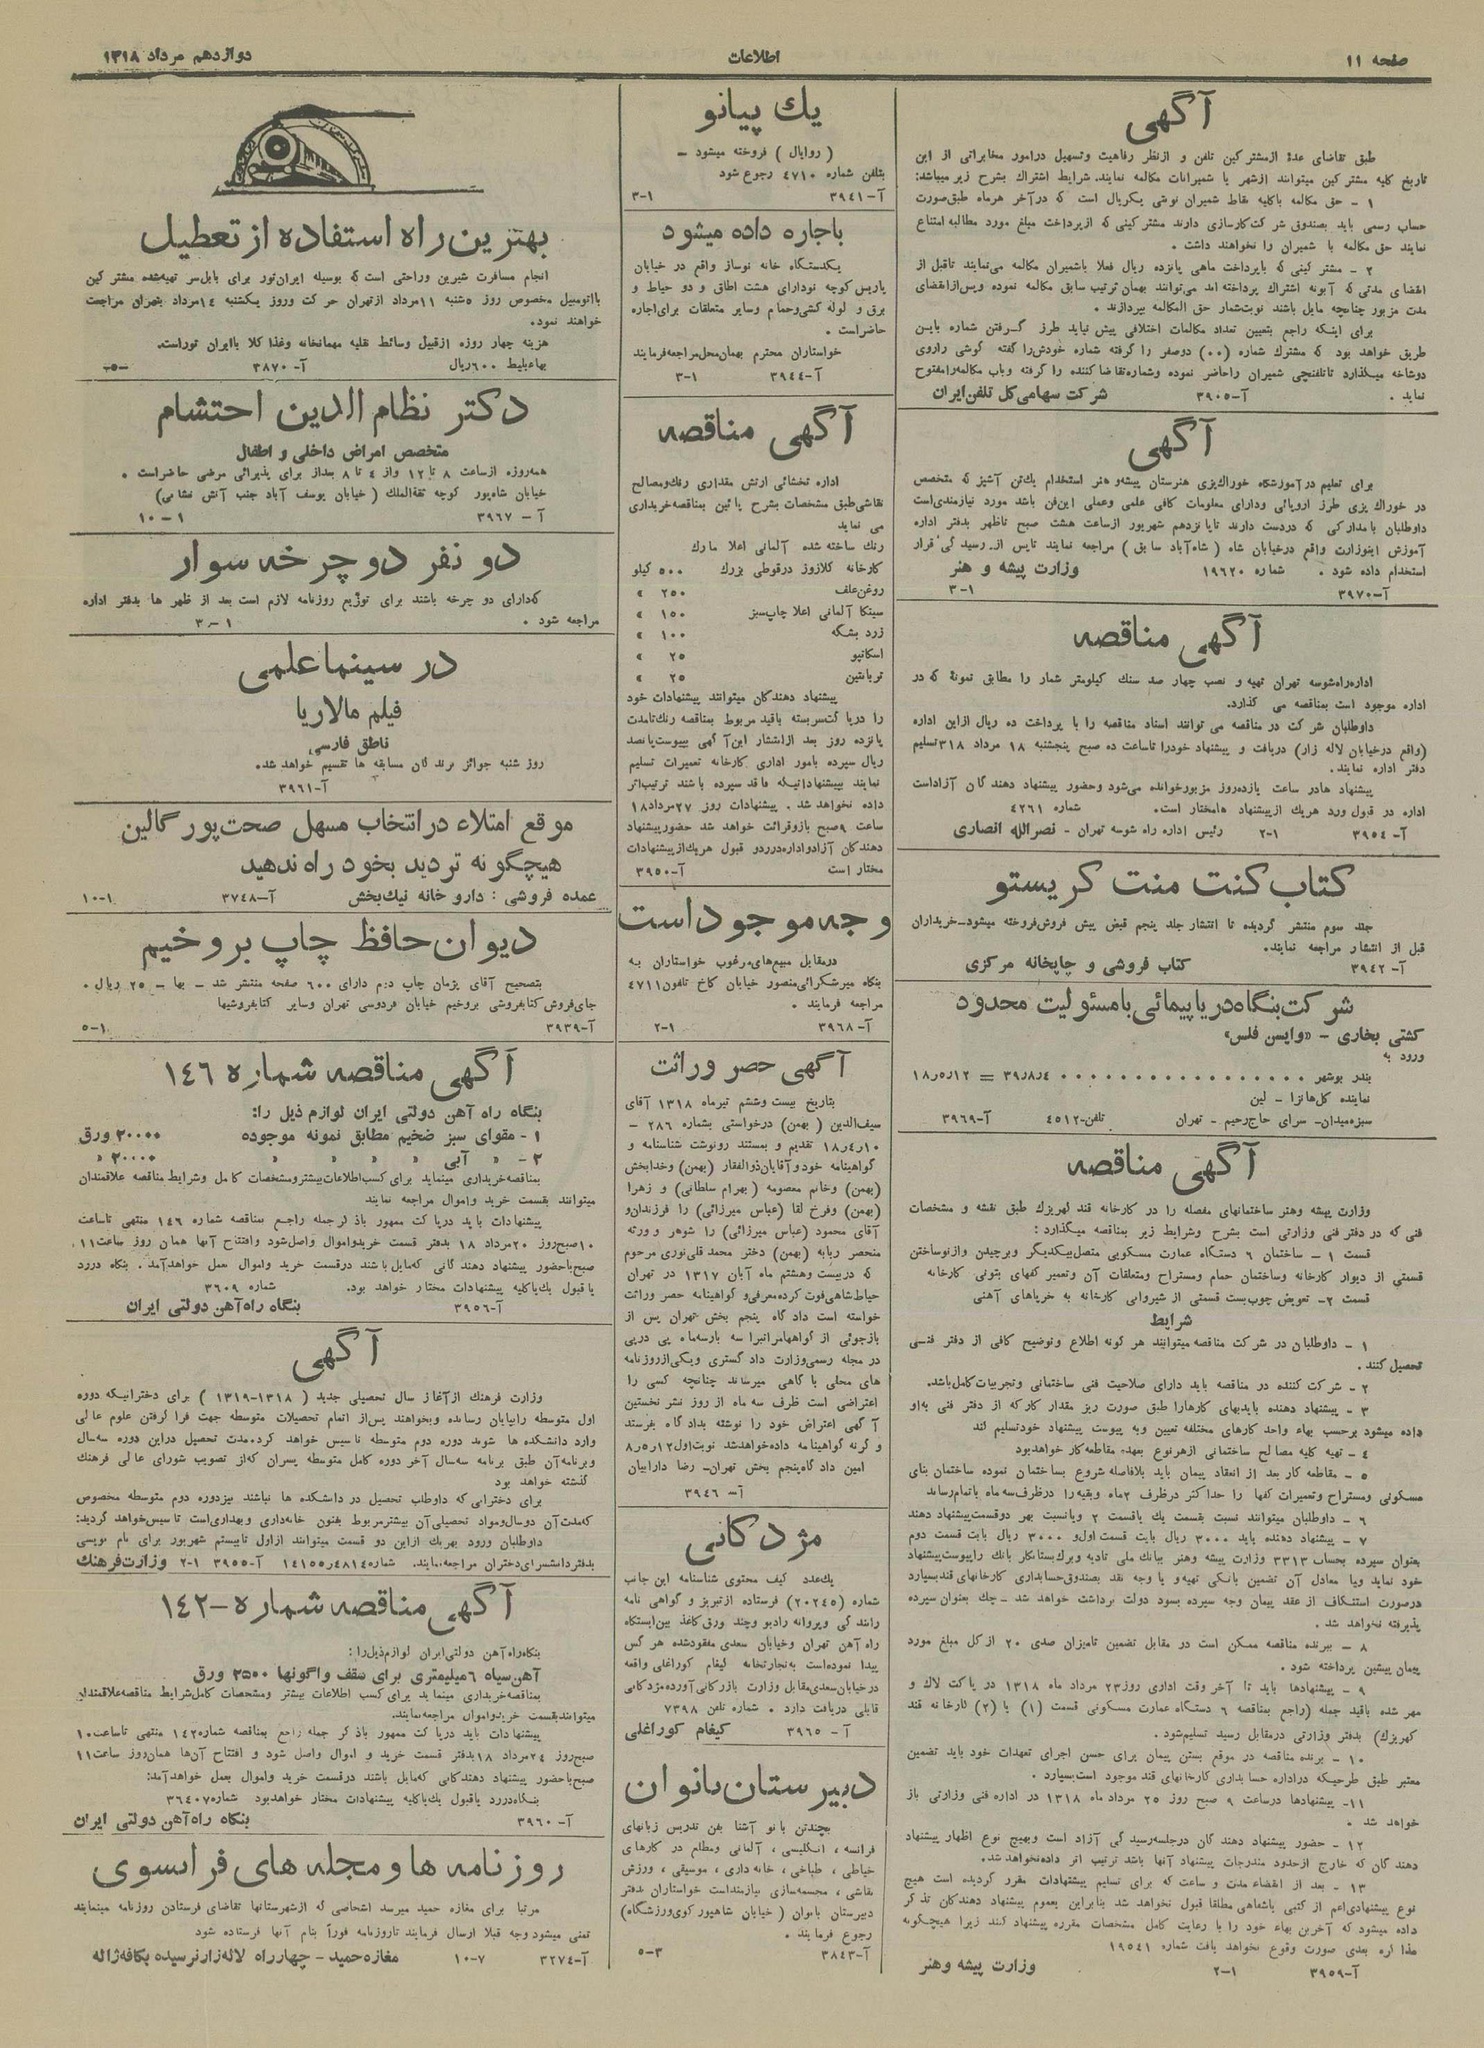 صفحه ۱۱
اطلاعات
دوازدهم مرداد ۱۳۱۸
آگهی
طبق تقاضای عدهٔ از مشترکین تلفن و از نظر رفاهیت و تسهیل در امور مخابراتی از این
تاریخ کلیه مشترکین میتوانند از شهر با شمیرانات مکالمه نمایند. شرایط اشتراك بشرح زیر میباشد:
۱ - حق مکالمه با کلیه نقاط شمیران نوبتی یکریال است که در آخر هر ماه طبق صورت
حساب رسمی باید بصندوق شرکت کارسازی دارند مشترکینی که از پرداخت مبلغ مورد مطالبه امتناع
نمایند حق مکالمه با شمیران را نخواهند داشت.
۲ - مشترکینی که با پرداخت ماهی پانزده ریال فعلا با شمیران مکالمه می‌نمایند تا قبل از
انقضای مدتی که آبونه اشتراك پرداخته‌اند می‌توانند بهمان ترتیب سابق مکالمه نموده و پس از انقضای
مدت مزبور چنانچه مایل باشند نوبت شمار حق المکالمه بپردازند.
برای اینکه راجع بتعیین تعداد مکالمات اختلافی پیش نیاید طرز گرفتن شماره باین
طریق خواهد بود که مشترك شماره (۰۰) دو صفر را گرفته شماره خودش را گفته گوشی را روی
دوشاخه میگذارد تا تلفنچی شمیران را حاضر نموده و شماره تقاضا کننده را گرفته و باب مکالمه را مفتوح
نماید. آ-۳۹۰۵ شرکت سهامی کل تلفن ایران
آگهی
برای تعلیم در آموزشگاه خوراك‌پزی هنرستان پیشه و هنر استخدام یك‌تن آشپز که متخصص
در خوراك پزی طرز اروپائی و دارای معلومات کافی علمی و عملی این فن باشد مورد نیازمندی است
داوطلبان با مدارکی که در دست دارند تا پانزدهم شهریور از ساعت هشت صبح تا ظهر بدفتر اداره
آموزش اینوزارت واقع در خیابان شاه (شاه‌آباد سابق) مراجعه نمایند تا پس از رسیدگی قرار
استخدام داده شود. شماره ۱۹۶۲۰ وزارت پیشه و هنر
آ-۳۹۷۰ ۳-۱
آگهی مناقصه
اداره راه شوسه تهران تهیه و نصب چهار صد سنك کیلومتر شمار را مطابق نمونهٔ که در
اداره موجود است بمناقصه می گذارد.
داوطلبان شرکت در مناقصه می توانند اسناد مناقصه را با پرداخت ده ریال از این اداره
(واقع در خیابان لاله زار) دریافت و پیشنهاد خود را تا ساعت ده صبح پنجشنبه ۱۸ مرداد ۳۱۸ تسلیم
دفتر اداره نمایند.
پیشنهادها در ساعت یازده روز مزبور خوانده می‌شود و حضور پیشنهاد دهندگان آزاد است
اداره در قبول و رد هریك از پیشنهادها مختار است. شماره ۴۲۶۱
آ-۳۹۵۴ ۲-۱ رئیس اداره راه شوسه تهران - نصرالله انصاری
کتاب کنت منت کریستو
جلد سوم منتشر گردیده تا انتشار جلد پنجم قبض پیش فروش فروخته میشود - خریداران
قبل از انتشار مراجعه نمایند.
آ-۳۹۴۲ کتاب فروشی و چاپخانه مرکزی
شرکت بنگاه دریاپیمائی با مسئولیت محدود
کشتی بخاری - «وایسن فلس»
ورود به
بندر بوشهر .................. ۳۹٫۸٫۴ = ۱۸٫۵٫۱۲
نماینده کل هانزا - لین
سبزه میدان - سرای حاج رحیم - تهران تلفن-۴۵۱۲ آ-۳۹۶۹
آگهی مناقصه
وزارت پیشه و هنر ساختمانهای مفصله را در کارخانه قند کهریزك طبق نقشه و مشخصات
فنی که در دفتر فنی وزارتی است بشرح و شرایط زیر بمناقصه میگذارد:
قسمت ۱ - ساختمان ۶ دستگاه عمارت مسکونی متصل بیکدیگر و برچیدن و از نو ساختن
قسمتی از دیوار کارخانه و ساختمان حمام و مستراح و متعلقات آن و تعمیر کفهای بتونی کارخانه
قسمت ۲- تعویض چوب بست قسمتی از شیروانی کارخانه به خرپاهای آهنی
شرایط
۱ - داوطلبان در شرکت مناقصه میتوانند هر گونه اطلاع و توضیح کافی از دفتر فنی
تحصیل کنند.
۲ - شرکت کننده در مناقصه باید دارای صلاحیت فنی ساختمانی و تجربیات کامل باشد.
۳ - پیشنهاد دهنده باید بهای کارها را طبق صورت ریز مقدار کار که از دفتر فنی به او
داده میشود برحسب بهاء واحد کارهای مختلفه تعیین و به پیوست پیشنهاد خود تسلیم کند
۴ - تهیه کلیه مصالح ساختمانی از هر نوع بعهده مقاطعه کار خواهد بود
۵ - مقاطعه کار بعد از انعقاد پیمان باید بلافاصله شروع بساختمان نموده ساختمان بنای
مسکونی و مستراح و تعمیرات کفها را حداکثر در ظرف ۲ ماه و بقیه را در ظرف سه ماه باتمام رساند
۶ - داوطلبان میتوانند نسبت بقسمت یك یا قسمت ۲ و یا نسبت بهر دو قسمت پیشنهاد دهند
۷ - پیشنهاد دهنده باید ۳۰۰۰ ریال بابت قسمت اول و ۳۰۰۰ ریال بابت قسمت دوم
بعنوان سپرده بحساب ۳۳۱۳ وزارت پیشه و هنر ببانك ملی تادیه و برك بستانکار بانك را پیوست پیشنهاد
خود نماید و یا معادل آن تضمین بانکی تهیه و یا وجه نقد بصندوق حسابداری کارخانهای قند بسپارد
در صورت استنکاف از عقد پیمان وجه سپرده بسود دولت برداشت خواهد شد - چك بعنوان سپرده
پذیرفته نخواهد شد.
۸ - ببرنده مناقصه ممکن است در مقابل تضمین تا میزان صدی ۲۰ از کل مبلغ مورد
پیمان پیشین پرداخته شود.
۹ - پیشنهادها باید تا آخر وقت اداری روز ۲۳ مرداد ماه ۱۳۱۸ در پاکت لاك و
مهر شده باقید جمله (راجع بمناقصه ۶ دستگاه عمارت مسکونی قسمت (۱) یا (۲) کارخانه قند
کهریزك) بدفتر وزارتی در مقابل رسید تسلیم شود.
۱۰ - برنده مناقصه در موقع بستن پیمان برای حسن اجرای تعهدات خود باید تضمین
معتبر طبق طرحیکه در اداره حسابداری کارخانهای قند موجود است بسپارد.
۱۱- پیشنهادها در ساعت ۹ صبح روز ۲۵ مرداد ماه ۱۳۱۸ در اداره فنی وزارتی باز
خواهد شد.
۱۲ - حضور پیشنهاد دهندگان در جلسه رسیدگی آزاد است و بهیچ نوع اظهار پیشنهاد
دهندگان که خارج از حدود مندرجات پیشنهاد آنها باشد ترتیب اثر داده نخواهد شد.
۱۳ - بعد از انقضاء مدت و ساعت که برای تسلیم پیشنهادات مقرر گردیده است هیچ
نوع پیشنهادی اعم از کتبی یا شفاهی مطلقا قبول نخواهد شد بنابراین بعموم پیشنهاد دهندگان تذکر
داده میشود که آخرین بهاء خود را با رعایت کامل مشخصات مقرره پیشنهاد کنند زیرا هیچگونه
مذاکره بعدی صورت وقوع نخواهد یافت شماره ۱۹۵۴۱
آ-۳۹۵۹ ۲-۱ وزارت پیشه و هنر
یك پیانو
(روایال) فروخته میشود -
بتلفن شماره ۴۷۱۰ رجوع شود
آ-۳۹۴۱ ۳-۱
باجاره داده میشود
یکدستگاه خانه نوساز واقع در خیابان
پاریس کوچه نو دارای هشت اطاق و دو حیاط و
برق و لوله کشی و حمام و سایر متعلقات برای اجاره
حاضر است.
خواستاران محترم بهمان محل مراجعه فرمایند
آ-۳۹۴۴ ۳-۱
آگهی مناقصه
اداره تخشائی ارتش مقداری رنك و مصالح
نقاشی طبق مشخصات بشرح پائین بمناقصه خریداری
می نماید
رنك ساخته شده آلمانی اعلا مارك
کارخانه کلازوز در قوطی بزرك ۵۰۰ کیلو
روغن علف ۲۵۰ »
سینکا آلمانی اعلا چاپ سبز ۱۵۰ »
زرد بشگه ۱۰۰ »
اسکاتیو ۲۵ »
تربانتین ۲۵ »
پیشنهاد دهندگان میتوانند پیشنهادات خود
را در پاکت سربسته باقید مربوط بمناقصه رنك تا مدت
پانزده روز بعد از انتشار این آگهی بپیوست پانصد
ریال سپرده بامور اداری کارخانه تعمیرات تسلیم
نمایند بپیشنهاداتیکه فاقد سپرده باشند ترتیب اثر
داده نخواهد شد. پیشنهادات روز ۲۷ مرداد ۱۸
ساعت ۹ صبح باز و قرائت خواهد شد حضور پیشنهاد
دهندگان آزاد و اداره در رد و قبول هریك از پیشنهادات
مختار است آ-۳۹۵۰
وجه موجود است
در مقابل مبیع‌های مرغوب خواستاران به
بنگاه میرشکرائی منصور خیابان کاخ تلفون ۴۷۱۱
مراجعه فرمایند.
آ-۳۹۶۸ ۲-۱
آگهی حصر وراثت
بتاریخ بیست و ششم تیرماه ۱۳۱۸ آقای
سیف‌الدین (بهمن) درخواستی بشماره ۲۸۶ -
۱۸٫۴٫۱۰ تقدیم و بمستند رونوشت شناسنامه و
گواهینامه خود و آقایان ذوالفقار (بهمن) و خدابخش
(بهمن) و خانم معصومه (بهرام سلطانی) و زهرا
(بهمن) و فرخ لقا (عباس میرزائی) را فرزندان و
آقای محمود (عباس میرزائی) را شوهر و ورثه
منحصر ربابه (بهمن) دختر محمد قلی نوری مرحوم
که در بیست و هشتم ماه آبان ۱۳۱۷ در تهران
حیاط شاهی فوت کرده معرفی و گواهینامه حصر وراثت
خواسته است دادگاه پنجم بخش تهران پس از
بازجوئی از گواهها مراتب را سه بار سه ماه پی در پی
در مجله رسمی وزارت دادگستری و یکی از روزنامه
های محلی با گاهی میرساند چنانچه کسی را
اعتراضی است ظرف سه ماه از روز نشر نخستین
آگهی اعتراض خود را نوشته بدادگاه بفرستد
و گرنه گواهینامه داده خواهد شد نوبت اول ۱۸٫۵٫۱۲
امین دادگاه پنجم بخش تهران - رضا دارابیان
آ- ۳۹۴۶
مژدگانی
یك‌عدد کیف محتوی شناسنامه این جانب
شماره (۲۰۲۴۵) فرستاده از تبریز و گواهی نامه
رانندگی و پروانه رادیو و چند ورق کاغذ بین ایستگاه
راه آهن تهران و خیابان سعدی مفقود شده هر کس
پیدا نموده است به تجارتخانه لیغام کوراغلی واقعه
در خیابان سعدی مقابل وزارت بازرگانی آورده مژدگانی
قابلی دریافت دارد. شماره تلفن ۷۳۹۸
آ-۳۹۶۵ کیغام کوراغلی
دبیرستان بانوان
بچندتن بانو آشنا بفن تدریس زبانهای
فرانسه، انگلیسی، آلمانی و معلم در کارهای
خیاطی، طباخی، خانه داری، موسیقی، ورزش
نقاشی، مجسمه سازی نیازمند است خواستاران بدفتر
دبیرستان بانوان (خیابان شاهپور کوی ورزشگاه)
رجوع فرمایند.
آ-۳۸۴۳ ۵-۳
بهترین راه استفاده از تعطیل
انجام مسافرت شیرین و راحتی است که بوسیله ایران‌تور برای بابل‌سر تهیه شده مشترکین
با اتومبیل مخصوص روز ۵ شنبه ۱۱ مرداد از تهران حرکت و روز یکشنبه ۱۴ مرداد بتهران مراجعت
خواهند نمود.
هزینه چهار روزه از قبیل وسائط نقلیه مهمانخانه و غذا کلا با ایران تور است.
بهاء بلیط ۶۰۰ ریال آ-۳۸۷۰ -۵-
دکتر نظام الدین احتشام
متخصص امراض داخلی و اطفال
همه روزه از ساعت ۸ تا ۱۲ و از ۴ تا ۸ بعد از برای پذیرائی مرضی حاضر است.
خیابان شاه‌پور کوچه ثقة‌الملك (خیابان یوسف آباد جنب آتش نشانی)
آ- ۳۹۶۷ ۱۰-۱
دو نفر دوچرخه سوار
که دارای دو چرخه باشند برای توزیع روزنامه لازم است بعد از ظهر ها بدفتر اداره
مراجعه شود. ۳-۱
در سینما علمی
فیلم مالاریا
ناطق فارسی
روز شنبه جوائز برندگان مسابقه ها تقسیم خواهد شد.
آ-۳۹۶۱
موقع امتلاء در انتخاب مسهل صحت پور گالین
هیچگونه تردید بخود راه ندهید
عمده فروشی: داروخانه نیك‌بخش آ-۳۷۴۸ ۱۰-۱
دیوان حافظ چاپ بروخیم
بتصحیح آقای پژمان چاپ دوم دارای ۶۰۰ صفحه منتشر شد - بها - ۲۵ ریال.
جای فروش کتابفروشی بروخیم خیابان فردوسی تهران و سایر کتابفروشیها
آ-۳۹۳۹ ۵-۱
آگهی مناقصه شماره ۱۴۶
بنگاه راه آهن دولتی ایران لوازم ذیل را:
۱ - مقوای سبز ضخیم مطابق نمونه موجوده ۲۰۰۰۰ ورق
۲ - » آبی » » » » ۲۰۰۰۰ »
بمناقصه خریداری مینماید برای کسب اطلاعات بیشتر و مشخصات کامل و شرایط مناقصه علاقمندان
میتوانند بقسمت خرید و اموال مراجعه نمایند
پیشنهادات باید در پاکت ممهور با ذکر جمله راجع بمناقصه شماره ۱۴۶ منتهی تا ساعت
۱۰ صبح روز ۲۰ مرداد ۱۸ بدفتر قسمت خرید و اموال واصل شود و افتتاح آنها همان روز ساعت ۱۱
صبح با حضور پیشنهاد دهندگانی که مایل باشند در قسمت خرید و اموال بعمل خواهد آمد. بنگاه در رد
یا قبول یك یا کلیه پیشنهادات مختار خواهد بود. شماره ۳۶۰۹
آ-۳۹۵۶ بنگاه راه آهن دولتی ایران
آگهی
وزارت فرهنك از آغاز سال تحصیلی جدید (۱۳۱۸-۱۳۱۹) برای دخترانیکه دوره
اول متوسطه را بپایان رسانده و بخواهند پس از اتمام تحصیلات متوسطه جهت فرا گرفتن علوم عالی
وارد دانشکده ها شوند دوره دوم متوسطه تاسیس خواهد کرد. مدت تحصیل در این دوره سه سال
و برنامه آن طبق برنامه سه سال آخر دوره کامل متوسطه پسران که از تصویب شورای عالی فرهنك
گذشته خواهد بود
برای دخترانی که داوطلب تحصیل در دانشکده ها نباشند نیز دوره دوم متوسطه مخصوص
که مدت آن دو سال و مواد تحصیلی آن بیشتر مربوط بفنون خانه‌داری و بهداری است تاسیس خواهد گردید:
داوطلبان ورود بهریك از این دو قسمت میتوانند از اول تا بیستم شهریور برای نام نویسی
بدفتر دانشسرای دختران مراجعه نمایند. شماره ۱۴۱۵۵٫۴۸۱۴ آ-۳۹۵۵ ۲-۱ وزارت فرهنك
آگهی مناقصه شماره-۱۴۲
بنگاه راه آهن دولتی ایران لوازم ذیل را:
آهن سیاه ۶ میلیمتری برای سقف واگونها ۲۵۰۰ ورق
بمناقصه خریداری مینماید برای کسب اطلاعات بیشتر و مشخصات کامل شرایط مناقصه علاقمندان
میتوانند بقسمت خرید و اموال مراجعه نمایند.
پیشنهادات باید در پاکت ممهور با ذکر جمله راجع بمناقصه شماره ۱۴۲ منتهی تا ساعت ۱۰
صبح روز ۲۴ مرداد ۱۸ بدفتر قسمت خرید و اموال واصل شود و افتتاح آن‌ها همان روز ساعت ۱۱
صبح با حضور پیشنهاد دهندگانی که مایل باشند در قسمت خرید و اموال بعمل خواهد آمد:
بنگاه در رد یا قبول یك یا کلیه پیشنهادات مختار خواهد بود شماره ۳۶۴۰۷
آ-۳۹۶۰ بنگاه راه آهن دولتی ایران
روزنامه ها و مجله های فرانسوی
مرتبا برای مغازه حمید میرسد اشخاصی که از شهرستانها تقاضای فرستادن روزنامه مینمایند
تمنی میشود وجه قبلا ارسال فرمایند تا روزنامه فوراً بنام آنها فرستاده شود
آ-۳۲۷۴ ۱۰-۷ مغازه حمید - چهارراه لاله‌زار نرسیده بکافه ژاله